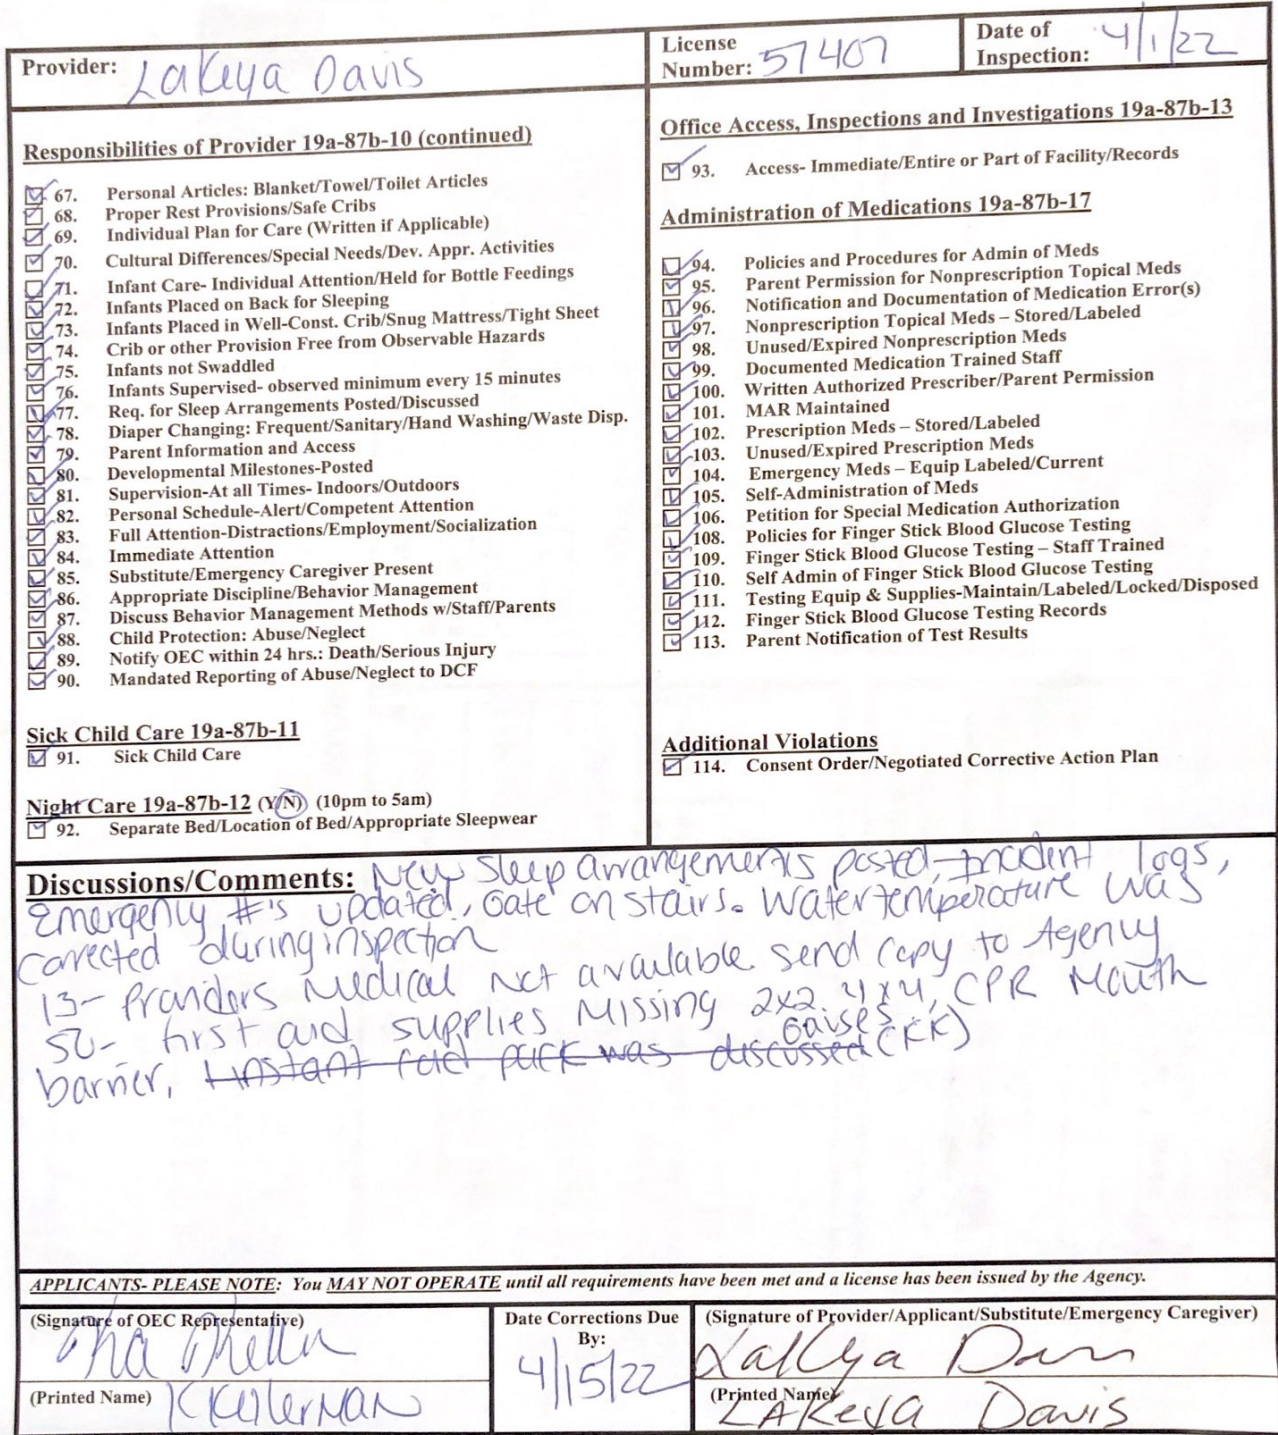 Provider: Lakeya Davis
License Number: 57407
Date of Inspection: 4/1/22
Responsibilities of Provider 19a-87b-10 (continued)
67. Personal Articles: Blanket/Towel/Toilet Articles
68. Proper Rest Provisions/Safe Cribs
69. Individual Plan for Care (Written if Applicable)
70. Cultural Differences/Special Needs/Dev. Appr. Activities
71. Infant Care- Individual Attention/Held for Bottle Feedings
72. Infants Placed on Back for Sleeping
73. Infants Placed in Well-Const. Crib/Snug Mattress/Tight Sheet
74. Crib or other Provision Free from Observable Hazards
75. Infants not Swaddled
76. Infants Supervised- observed minimum every 15 minutes
77. Req. for Sleep Arrangements Posted/Discussed
78. Diaper Changing: Frequent/Sanitary/Hand Washing/Waste Disp.
79. Parent Information and Access
80. Developmental Milestones-Posted
81. Supervision-At all Times- Indoors/Outdoors
82. Personal Schedule-Alert/Competent Attention
83. Full Attention-Distractions/Employment/Socialization
84. Immediate Attention
85. Substitute/Emergency Caregiver Present
86. Appropriate Discipline/Behavior Management
87. Discuss Behavior Management Methods w/Staff/Parents
88. Child Protection: Abuse/Neglect
89. Notify OEC within 24 hrs.: Death/Serious Injury
90. Mandated Reporting of Abuse/Neglect to DCF
Sick Child Care 19a-87b-11
91. Sick Child Care
Night Care 19a-87b-12 (Y/N) (10pm to 5am)
92. Separate Bed/Location of Bed/Appropriate Sleepwear
Office Access, Inspections and Investigations 19a-87b-13
93. Access- Immediate/Entire or Part of Facility/Records
Administration of Medications 19a-87b-17
94. Policies and Procedures for Admin of Meds
95. Parent Permission for Nonprescription Topical Meds
96. Notification and Documentation of Medication Error(s)
97. Nonprescription Topical Meds – Stored/Labeled
98. Unused/Expired Nonprescription Meds
99. Documented Medication Trained Staff
100. Written Authorized Prescriber/Parent Permission
101. MAR Maintained
102. Prescription Meds – Stored/Labeled
103. Unused/Expired Prescription Meds
104. Emergency Meds – Equip Labeled/Current
105. Self-Administration of Meds
106. Petition for Special Medication Authorization
108. Policies for Finger Stick Blood Glucose Testing
109. Finger Stick Blood Glucose Testing – Staff Trained
110. Self Admin of Finger Stick Blood Glucose Testing
111. Testing Equip & Supplies-Maintain/Labeled/Locked/Disposed
112. Finger Stick Blood Glucose Testing Records
113. Parent Notification of Test Results
Additional Violations
114. Consent Order/Negotiated Corrective Action Plan
Discussions/Comments: New Sleep arrangements posted, Incident logs,
Emergency #'s updated, Gate on stairs. Water temperature was
corrected during inspection
13- Providers Medical Not available send copy to Agency
50- first aid supplies Missing 2x2, 4x4, CPR Mouth
gauses
barrier, instant cold pack was discussed (KK)
APPLICANTS- PLEASE NOTE: You MAY NOT OPERATE until all requirements have been met and a license has been issued by the Agency.
(Signature of OEC Representative)
(Printed Name) K Kellerman
Date Corrections Due By:
4/15/22
(Signature of Provider/Applicant/Substitute/Emergency Caregiver)
Lakeya Davis
(Printed Name)
LaKeya Davis